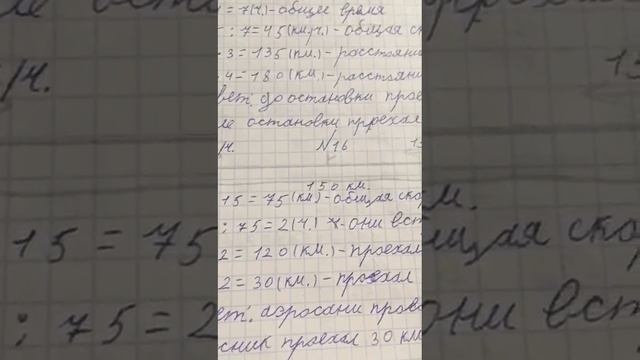 = 7(ч.) - общее время
: 7 = 45 (км/ч.) - общая ско
· 3 = 135 (км.) - расстояни
· 4 = 180 (км.) - расстояни
вет: до остановки прое
ле остановки прроехал
ч. №16
150 км.
15 = 75 (км) - общая скор
: 75 = 2(ч.) они вст
2 = 120 (км.) - проехал
2 = 30 (км.) - проехал
ет: аэросани прове
сник проехал 30 км